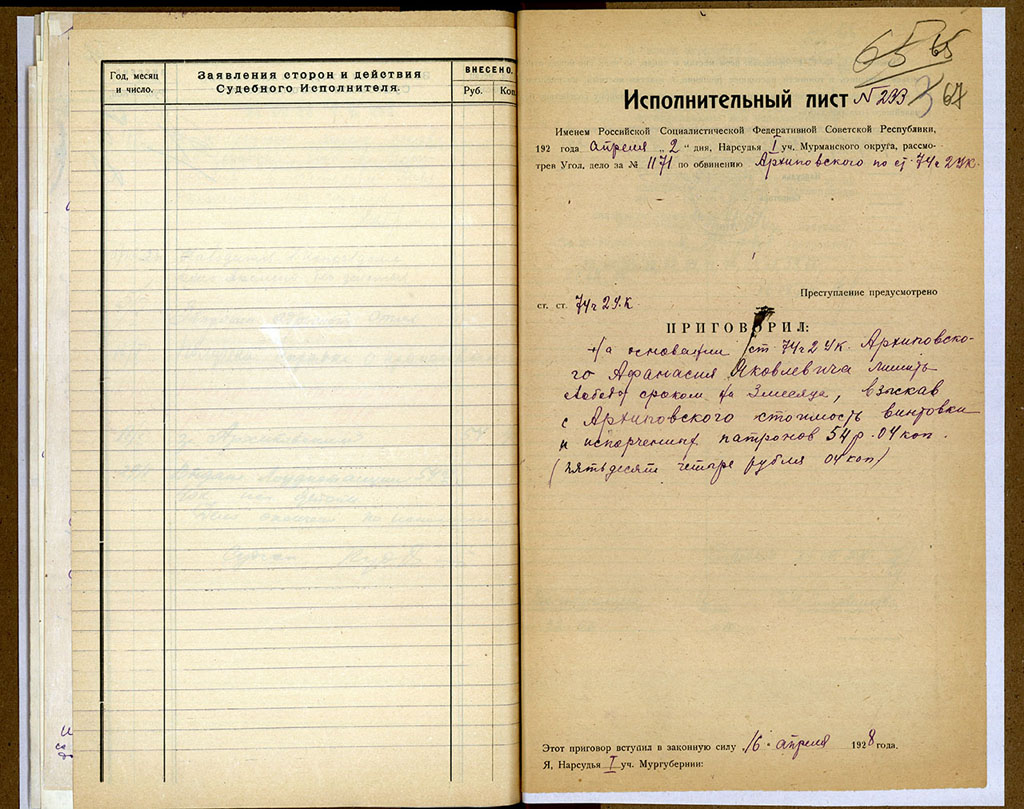 Год, месяц
и число.
Заявления сторон и действия
Судебного Исполнителя.
ВНЕСЕНО.
Руб.
Коп
65 65
3 67
Исполнительный лист № 233
Именем Российской Социалистической Федеративной Советской Республики,
192 года Апреля „2“ дня, Нарсудья I уч. Мурманского округа, рассмо-
трев Угол. дело за № 1171 по обвинению Архиповского по ст. 74 ч 2 УК.
Преступление предусмотрено
ст. ст. 74 ч 2 У.К.
ПРИГОВОРИЛ:
На основании ст 74 ч 2 УК. Архиповско-
го Афанасия Яковлевича лишить
свободы сроком на 3 месяца, взыскав
с Архиповского стоимость винтовки
и испорченных патронов 54 р. 04 коп.
(пятьдесят четыре рубля 04 коп)
Этот приговор вступил в законную силу 16 апреля 1928 года.
Я, Нарсудья I уч. Мургубернии: